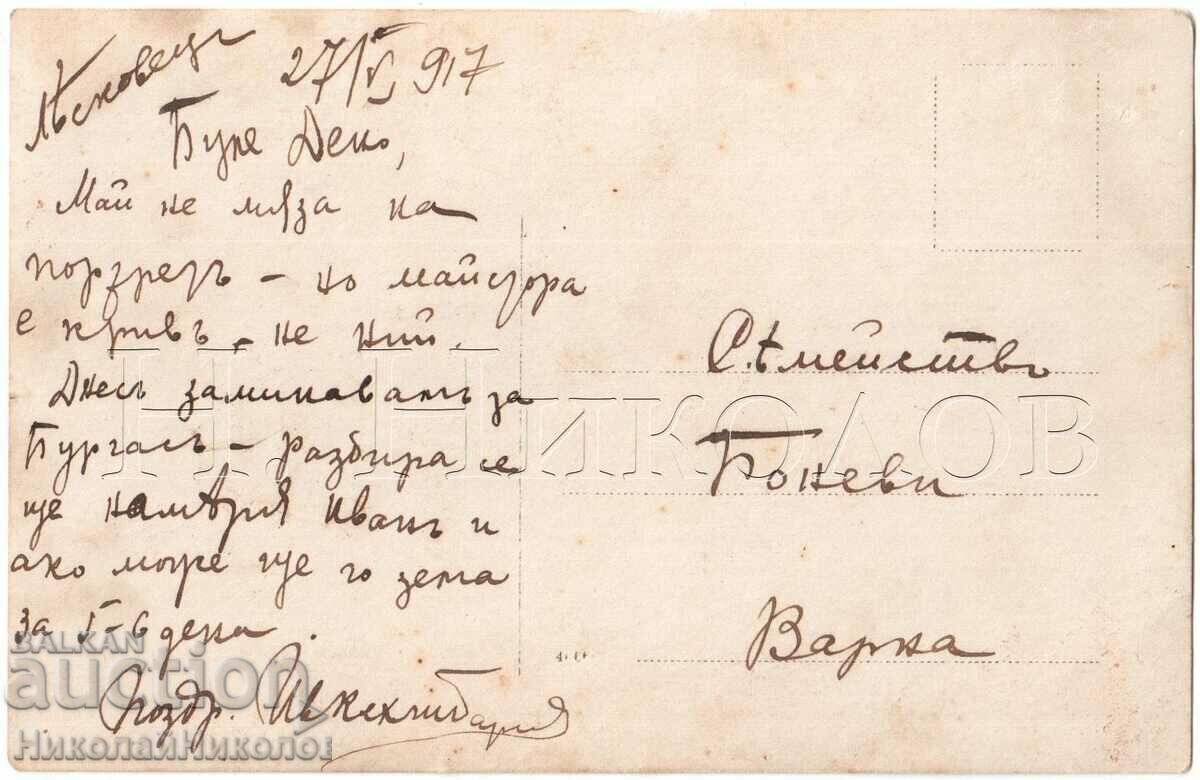 Лѣсковецъ
27/V 917
Буке Деко,
Май не мяза на
портретъ – но майстора
е кривъ, не ний.
Днесъ заминавамъ за
Бургасъ – разбира се
ще намѣря Иванъ и
ако може ще го зема
за 5-6 дена.
Поздр.
Сѣмейство
Боневи
Варна
Н. НИКОЛОВ
BALKAN
auction
НиколайНиколов